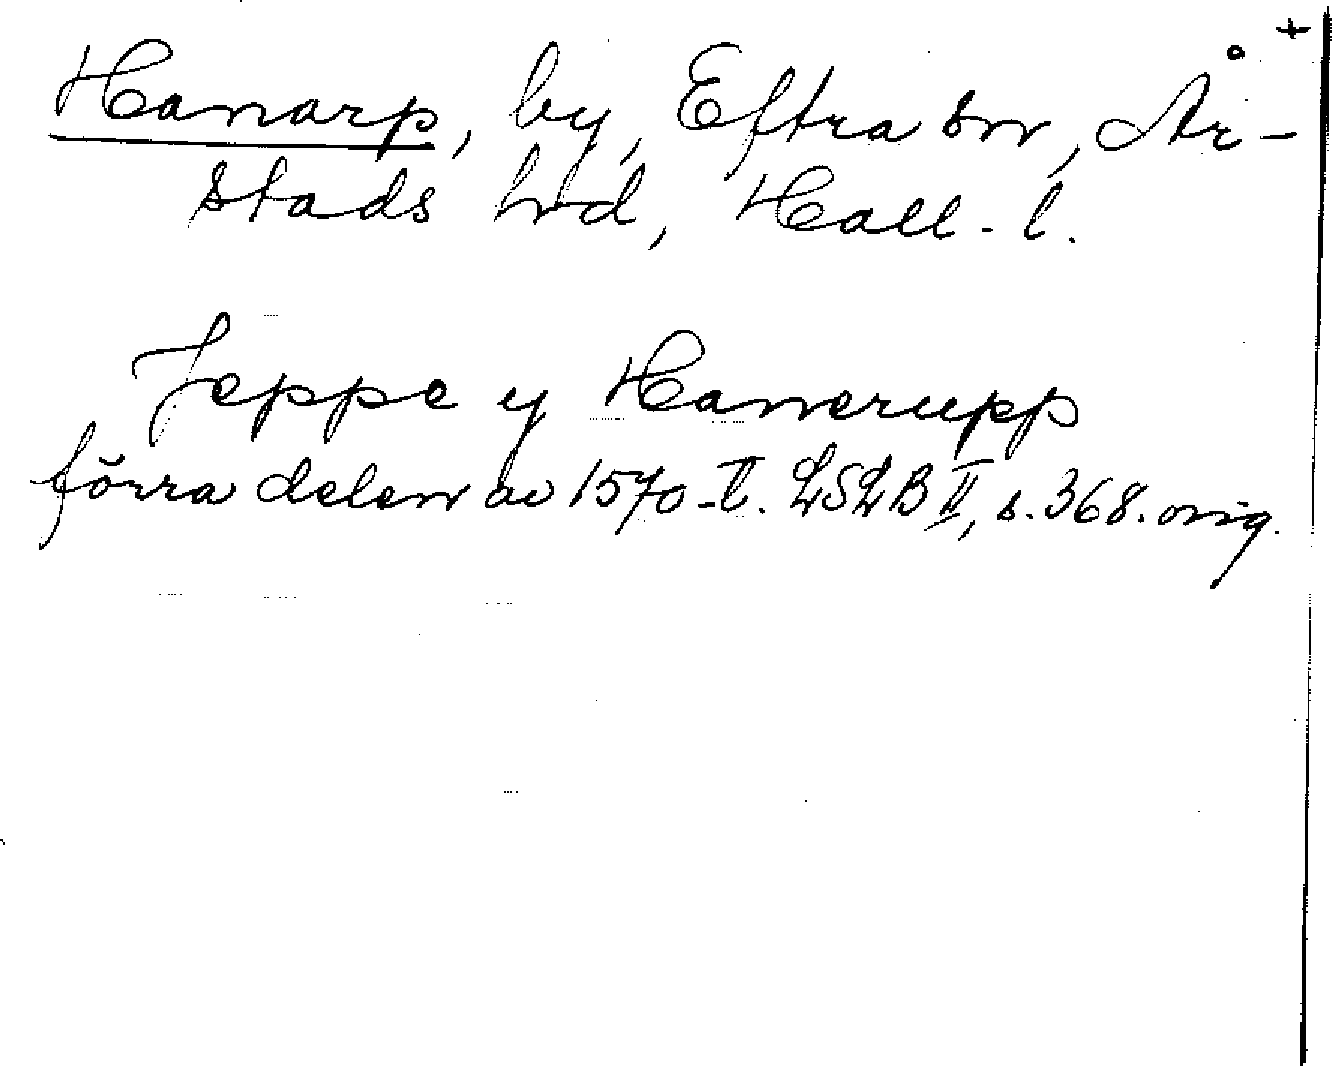 +
Hanarp, by, Eftra sn, År-
stads hd, Hall. l.
Jeppe y Hannerupp
förra delen av 1570-t. LSLB II, s. 368. orig.